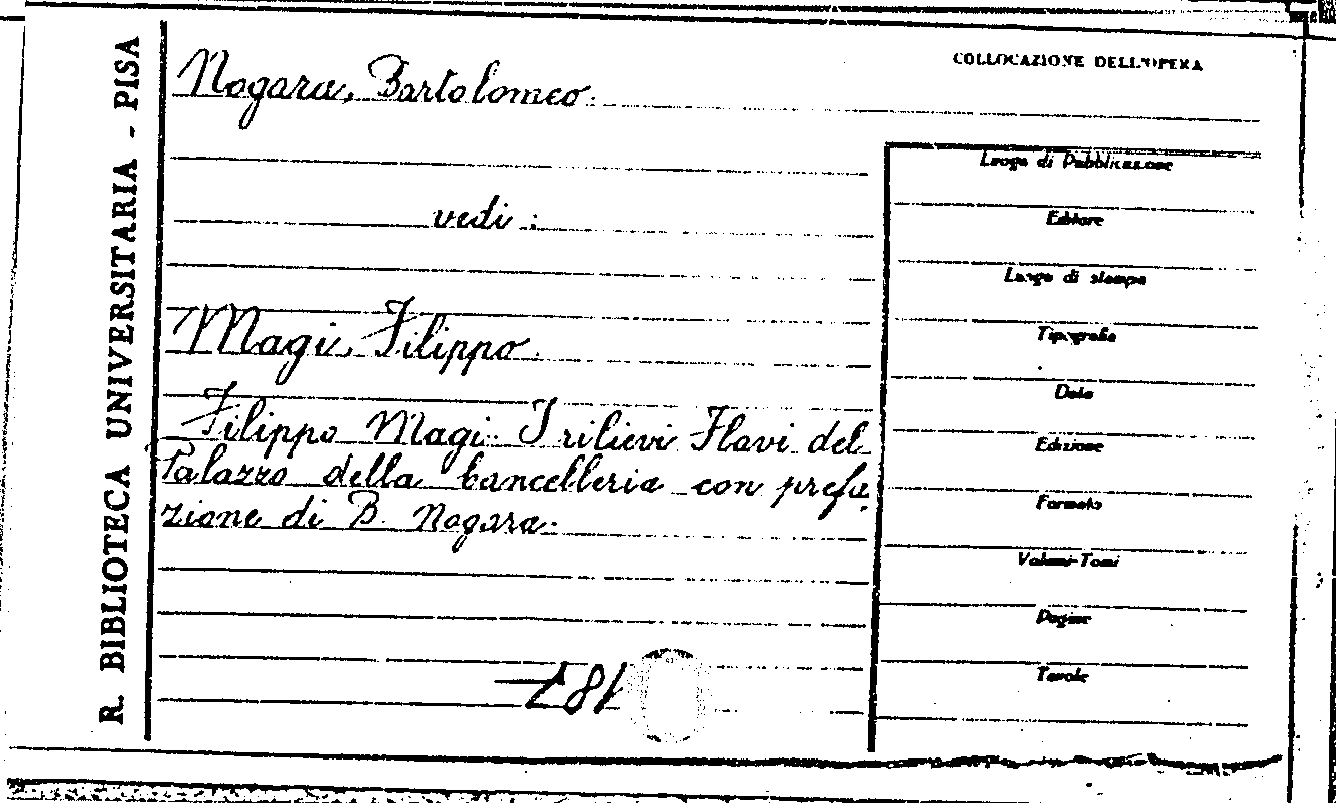 R. BIBLIOTECA UNIVERSITARIA - PISA
Nogara, Bartolomeo.
COLLOCAZIONE DELL'OPERA
vedi:
Magi, Filippo.
Filippo Magi. I rilievi Flavi del
Palazzo della Cancelleria con prefa-
zione di B. Nogara.
Luogo di Pubblicazione
Editore
Luogo di stampa
Tipografia
Data
Edizione
Formato
Volumi-Tomi
Pagine
Tavole